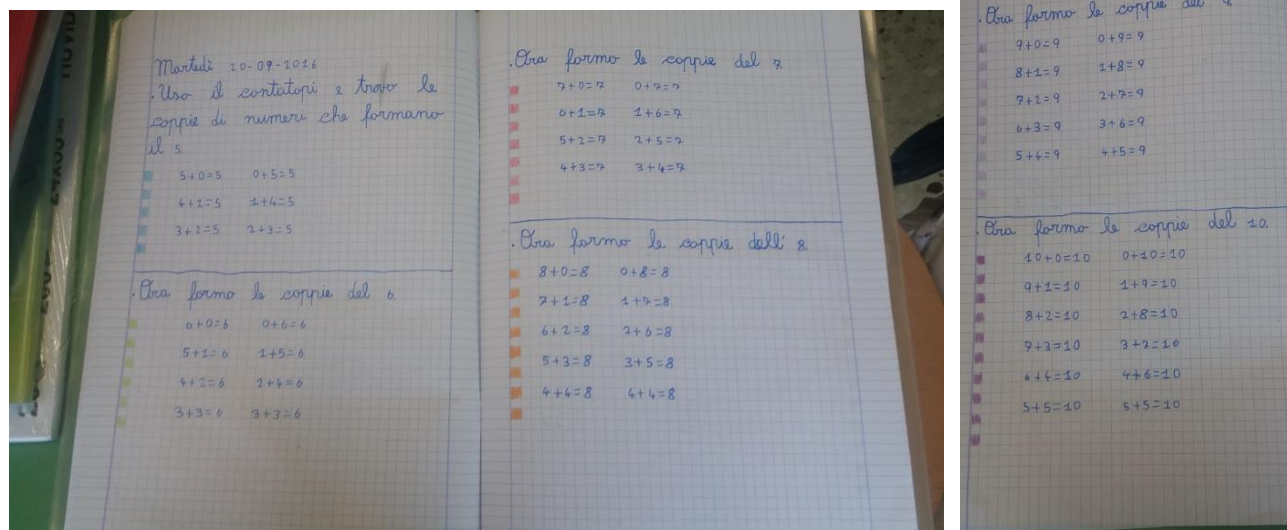 Martedì 20-09-2016
. Uso il contatopi e trovo le
coppie di numeri che formano
il 5.
5+0=5 0+5=5
4+1=5 1+4=5
3+2=5 2+3=5
. Ora formo le coppie del 6.
6+0=6 0+6=6
5+1=6 1+5=6
4+2=6 2+4=6
3+3=6 3+3=6
. Ora formo le coppie del 7
7+0=7 0+7=7
6+1=7 1+6=7
5+2=7 2+5=7
4+3=7 3+4=7
. Ora formo le coppie dell' 8.
8+0=8 0+8=8
7+1=8 1+7=8
6+2=8 2+6=8
5+3=8 3+5=8
4+4=8 4+4=8
. Ora formo le coppie del 9.
9+0=9 0+9=9
8+1=9 1+8=9
7+2=9 2+7=9
6+3=9 3+6=9
5+4=9 4+5=9
. Ora formo le coppie del 10.
10+0=10 0+10=10
9+1=10 1+9=10
8+2=10 2+8=10
7+3=10 3+7=10
6+4=10 4+6=10
5+5=10 5+5=10